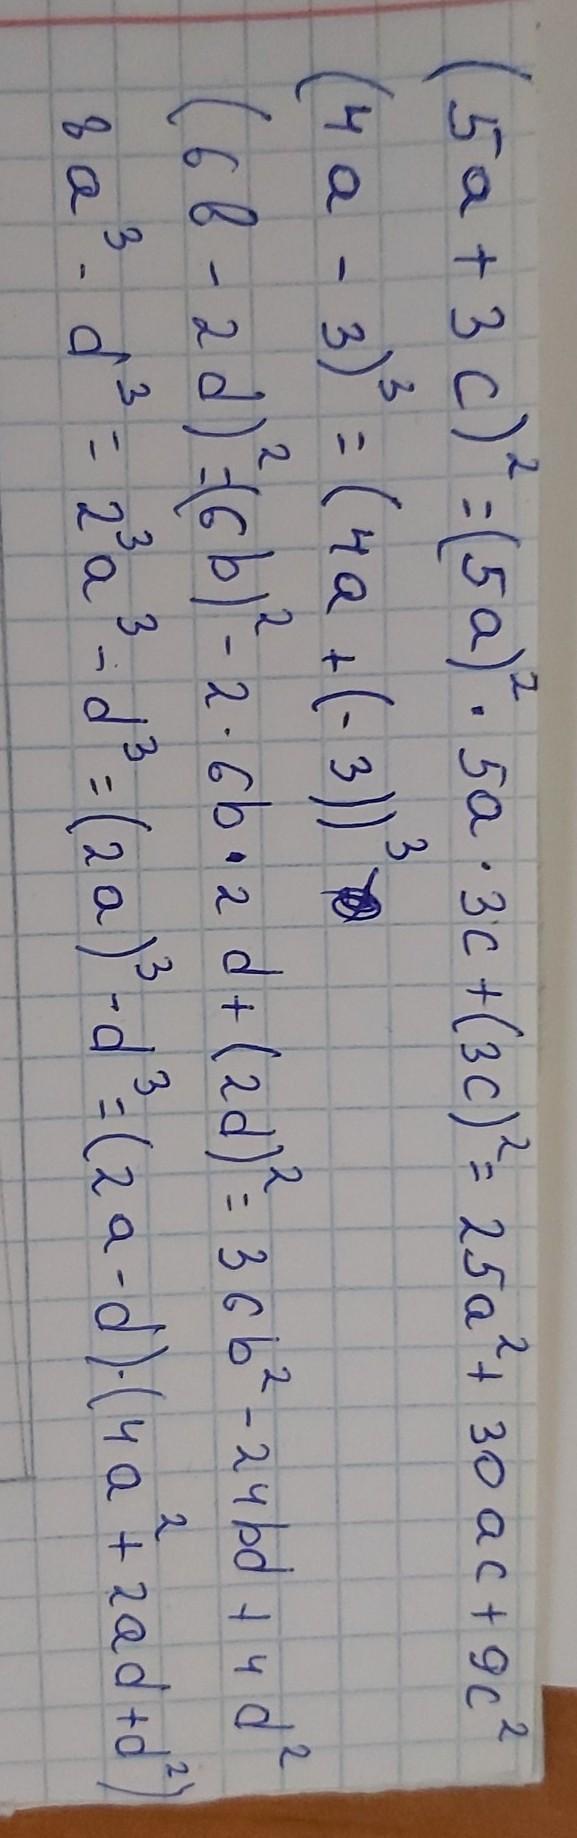 (5a + 3c)² = (5a)² · 5a · 3c + (3c)² = 25a² + 30ac + 9c²
(4a - 3)³ = (4a + (-3))³
(6b - 2d)² = (6b)² - 2 · 6b · 2d + (2d)² = 36b² - 24bd + 4d²
8a³ - d³ = 2³a³ - d³ = (2a)³ - d³ = (2a - d) · (4a² + 2ad + d²)